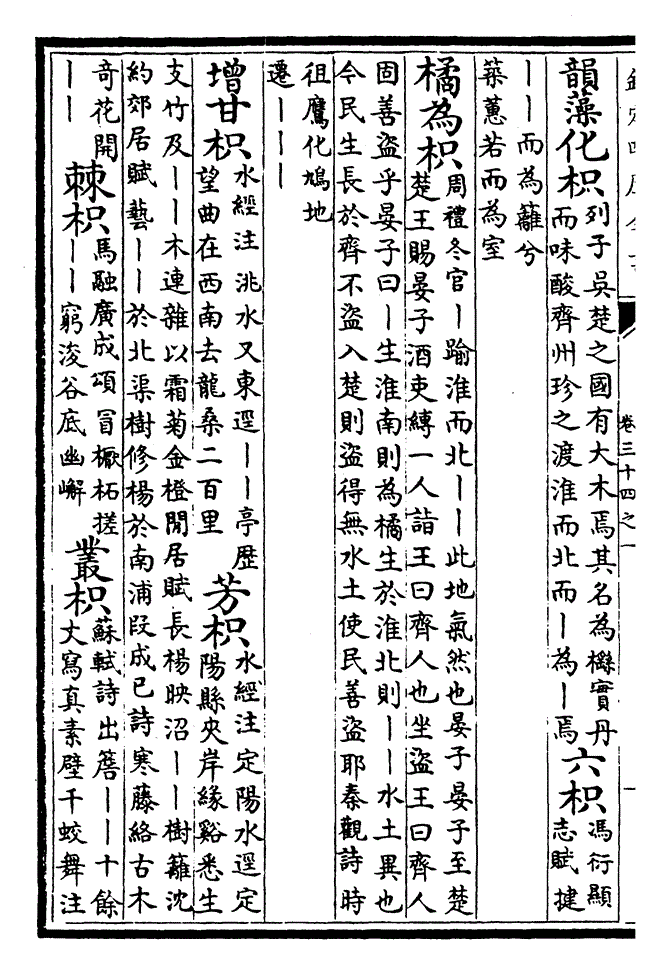 卷三十四之一
韻藻化枳列子吳楚之國有大木焉其名為櫾實丹
而味酸齊州珍之渡淮而北而丨為丨焉
六枳馮衍顯
志賦揵
丨丨而為籬兮
築蕙若而為室
橘為枳周禮冬官丨踰淮而北丨丨此地氣然也晏子晏子至楚
楚王賜晏子酒吏縛一人詣王曰齊人也坐盜王曰齊人
固善盜乎晏子曰丨生淮南則為橘生於淮北則丨丨水土異也
令民生長於齊不盜入楚則盜得無水土使民善盜耶秦觀詩時
徂鷹化鳩地
遷丨丨丨
增甘枳水經注洮水又東逕丨丨亭歷
望曲在西南去龍桑二百里
芳枳水經注定陽水逕定
陽縣夾岸緣谿悉生
支竹及丨丨木連雜以霜菊金橙閒居賦長楊映沼丨丨樹籬沈
約郊居賦藝丨丨於北渠樹修楊於南浦段成已詩寒藤絡古木
奇花開
丨丨
棘枳馬融廣成頌冒橛柘搓
丨丨窮浚谷底幽嶰
叢枳蘇軾詩出簷丨丨十餘
丈寫真素壁千蛟舞注